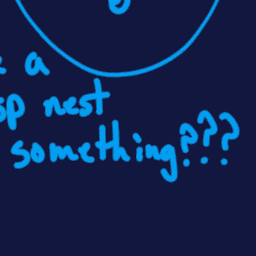 a
nest
something???